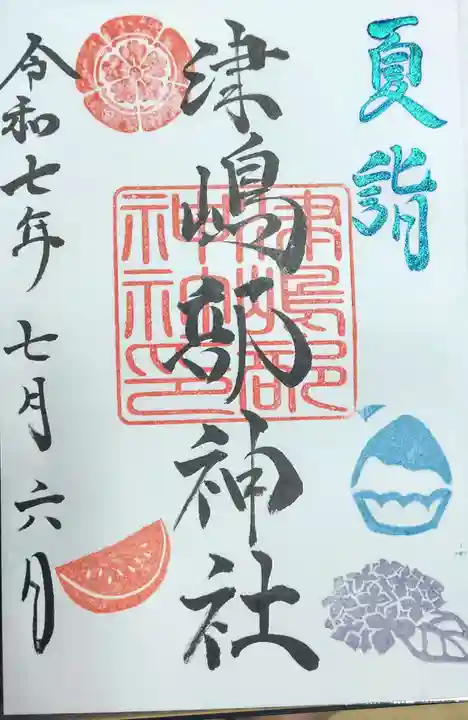 夏詣
津嶋部神社
津嶋部
神社印
令和七年七月六月